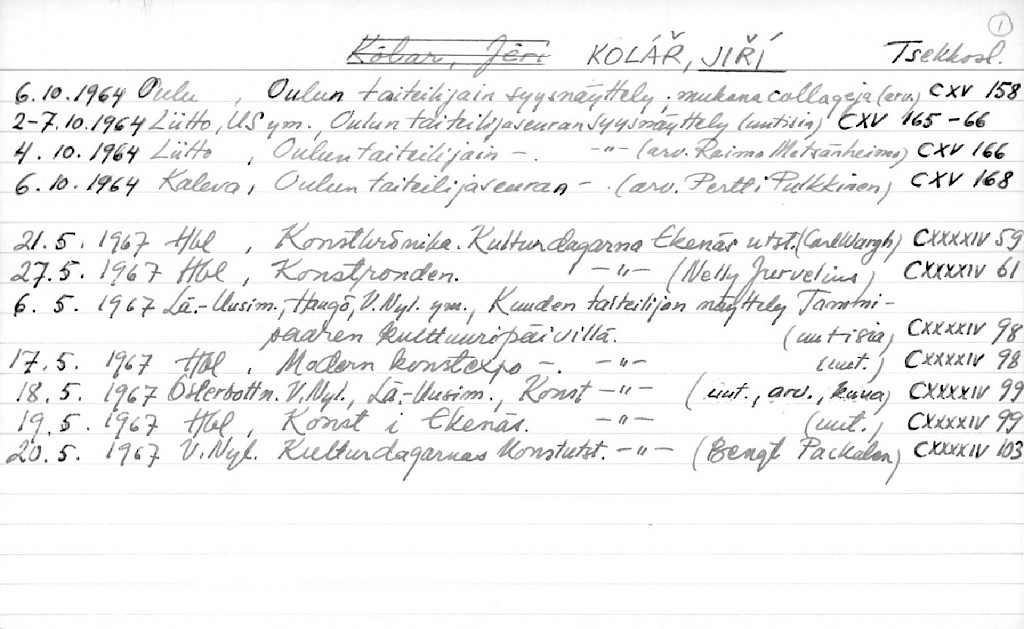 1
Kolar, Jeri KOLÁŘ, JIŘÍ Tsekkosl.
6.10.1964 Oulu , Oulun taiteilijain syysnäyttely ; mukana collageja (arv.) CXV 158
2-7.10.1964 Liitto, US ym., Oulun taiteilijaseuran syysnäyttely (uutisia) CXV 165-66
4.10.1964 Liitto , Oulun taiteilijain -. -"- (arv. Raimo Metsänheimo) CXV 166
6.10.1964 Kaleva, Oulun taiteilijaseuran -. (arv. Pertti Pulkkinen) CXV 168
21.5. 1967 Hbl , Konstkrönika. Kulturdagarna Ekenäs utst. (Carl Wargh) CXXXXIV 59
27.5. 1967 Hbl , Konstronden. -"- (Nelly Jurvelius) CXXXXIV 61
6.5. 1967 Lä.-Uusim., Hangö, V.Nyl. ym., Kuuden taiteilijan näyttely Tammi-
saaren kulttuuripäivillä. (uutisia) CXXXXIV 98
17.5. 1967 Hbl , Modern konstexpo -. -"- (uut.) CXXXXIV 98
18.5. 1967 Österbottn. V.Nyl., Lä.-Uusim., Konst -"- (uut., arv., kuva) CXXXXIV 99
19.5. 1967 Hbl , Konst i Ekenäs. -"- (uut.) CXXXXIV 99
20.5. 1967 V.Nyl. Kulturdagarnas konstutst. -"- (Bengt Packalen) CXXXXIV 103